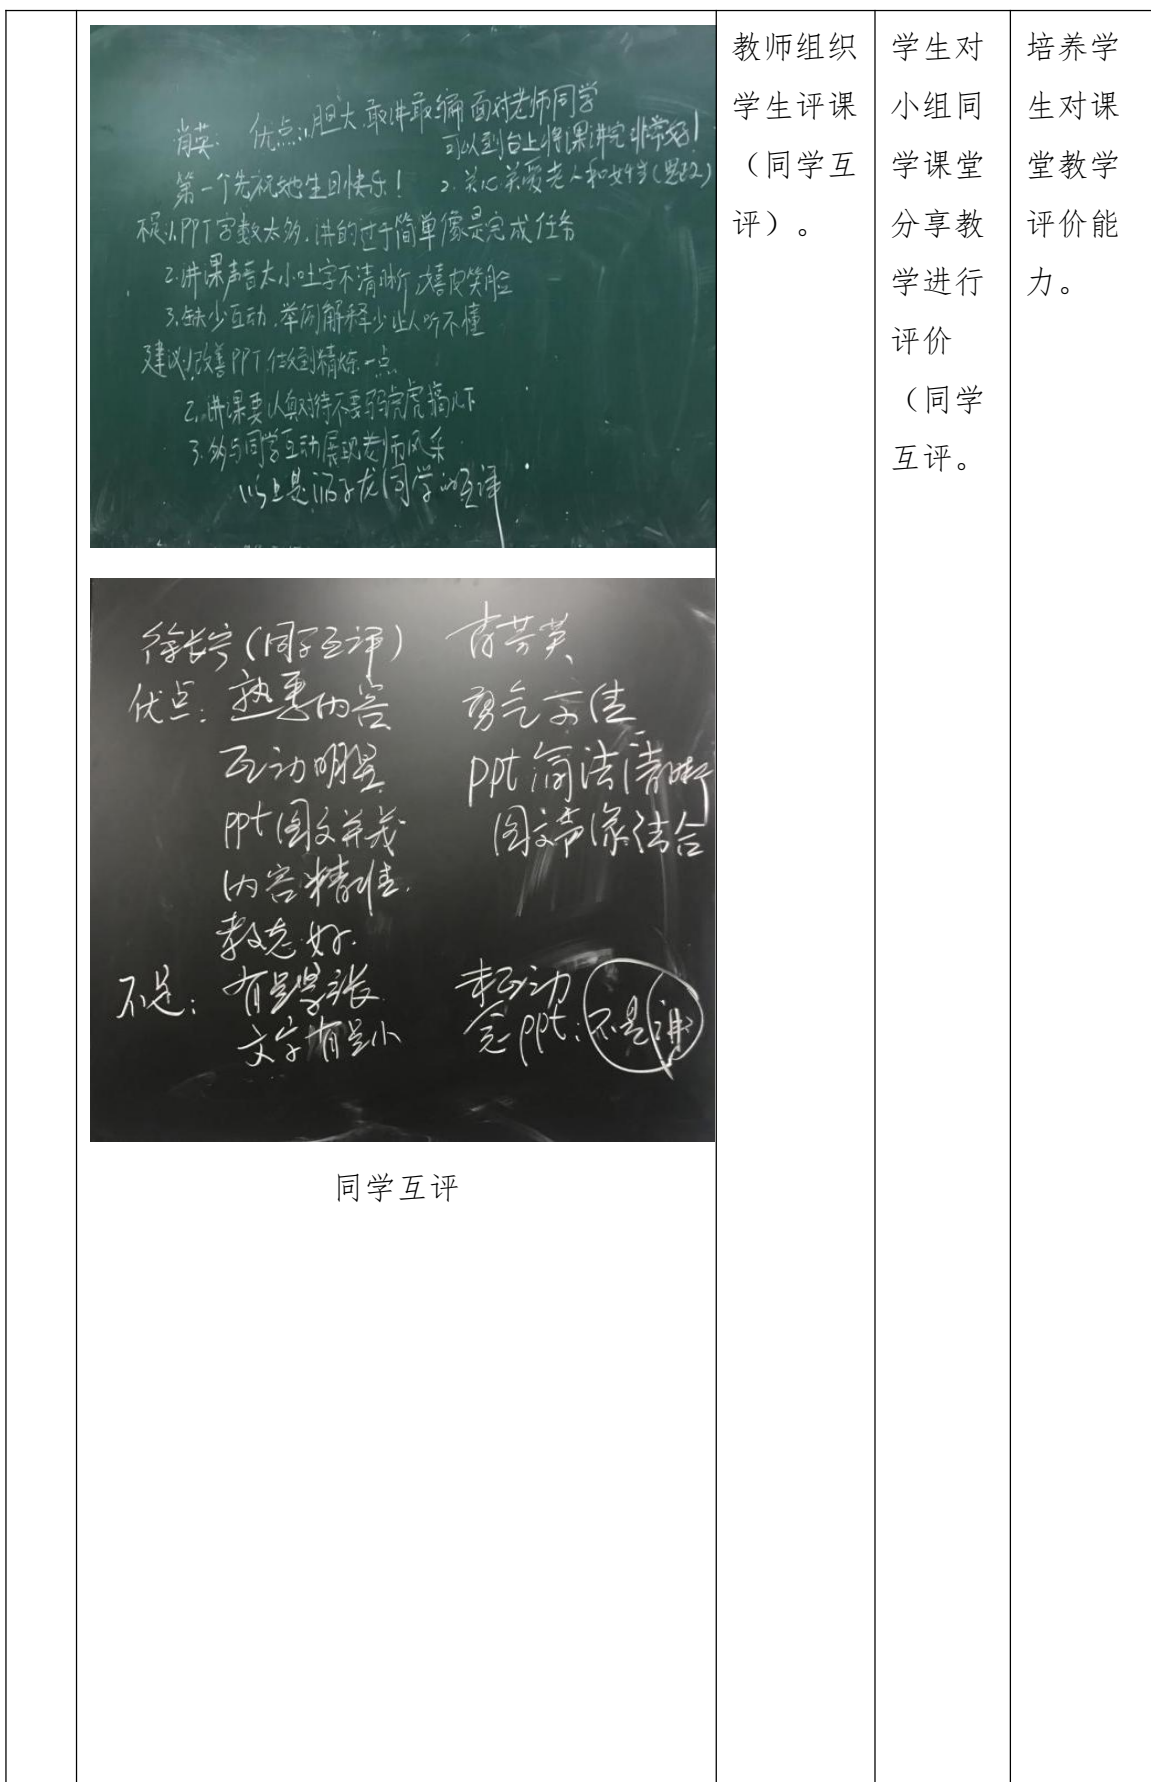 肖英：优点：1.胆大敢讲敢编 面对老师同学
可以到台上将课讲完非常好！
第一个先祝她生日快乐！ 2.关心关爱老人和女生(思政)
不足:1.PPT字数太多.讲的过于简单像是完成任务
2.讲课声音太小吐字不清晰嬉皮笑脸
3.缺少互动.举例解释少让人听不懂
建议:1.改善PPT.做到精炼一点
2.讲课要认真对待不要马马虎虎搞几下
3.多与同学互动展现老师风采
以上是 同学的互评
徐长宁(同学互评) 肖芸英
优点：熟悉内容 勇气方佳
互动明显 ppt简洁清晰
ppt图文并茂 图文带像结合
内容精准.
教态好.
不足：有点紧张 未互动
文字有点小 念ppt：不是讲
同学互评
教师组织
学生评课
（同学互
评）。
学生对
小组同
学课堂
分享教
学进行
评价
（同学
互评。
培养学
生对课
堂教学
评价能
力。